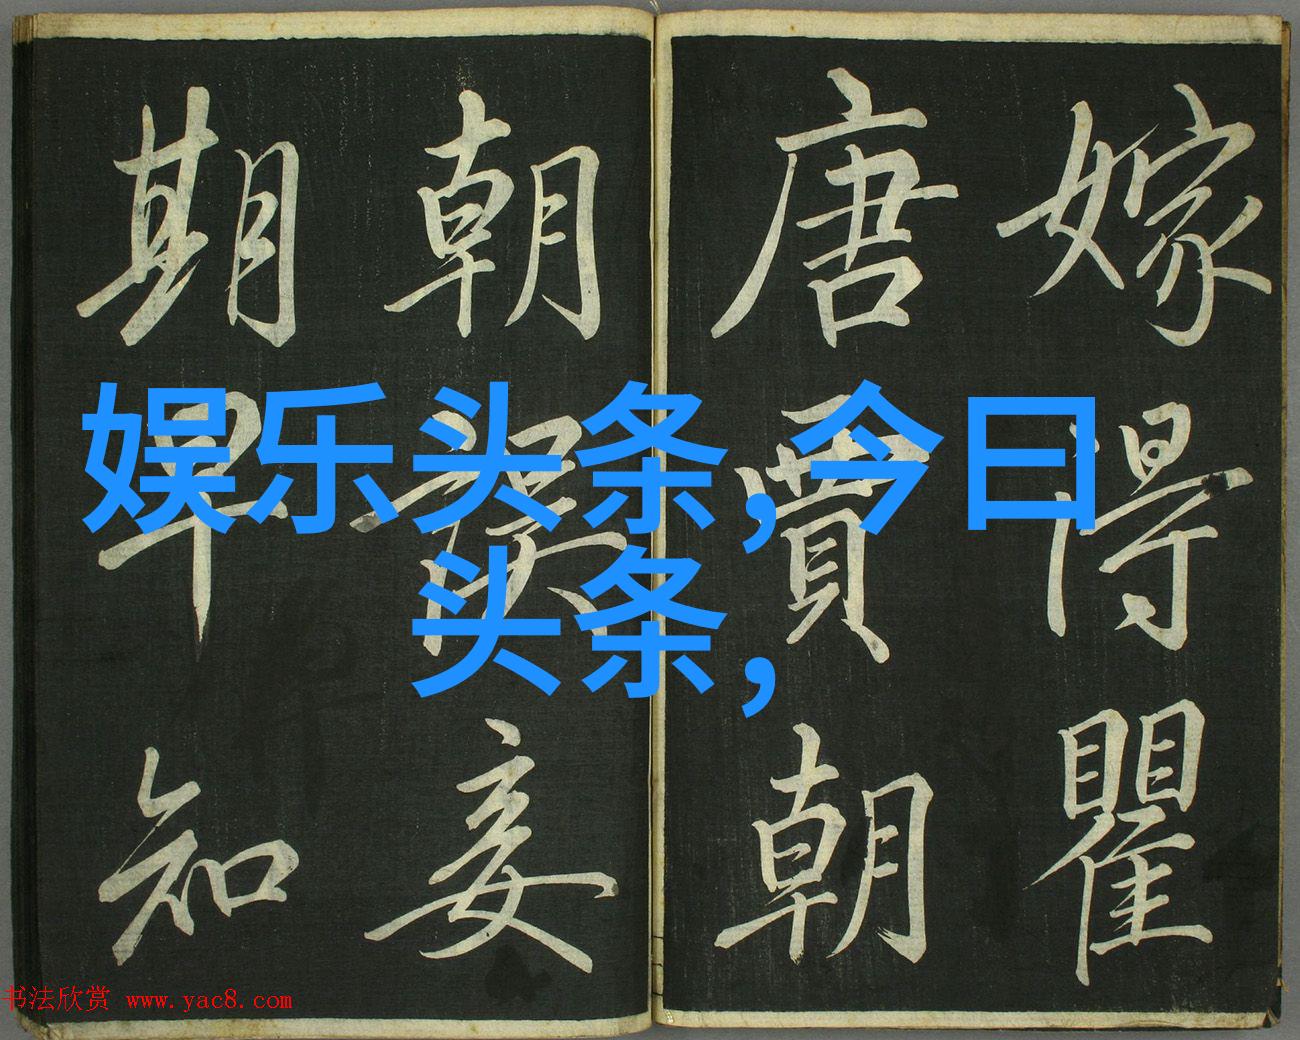 嫁得瞿
唐賈朝
朝誤妾
期早知
娱乐头条,今曰
头条,
书法欣赏 www.yac8.com